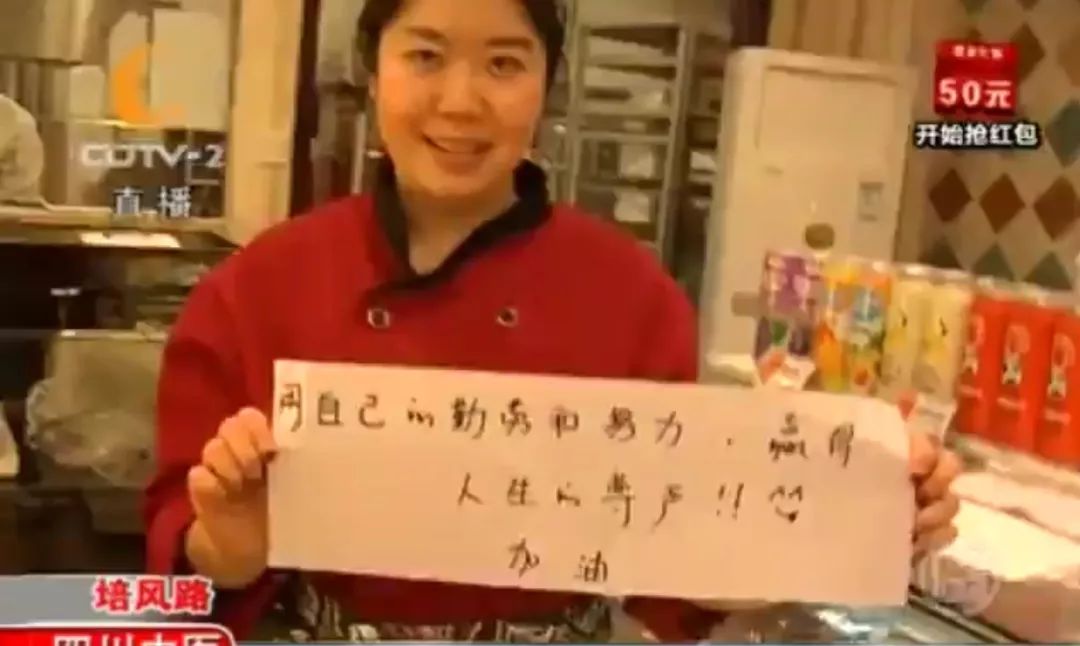 CDTV-2
直播
50元
开始抢红包
用自己的勤劳和努力，赢得
人生的尊严!!
加油
培风路